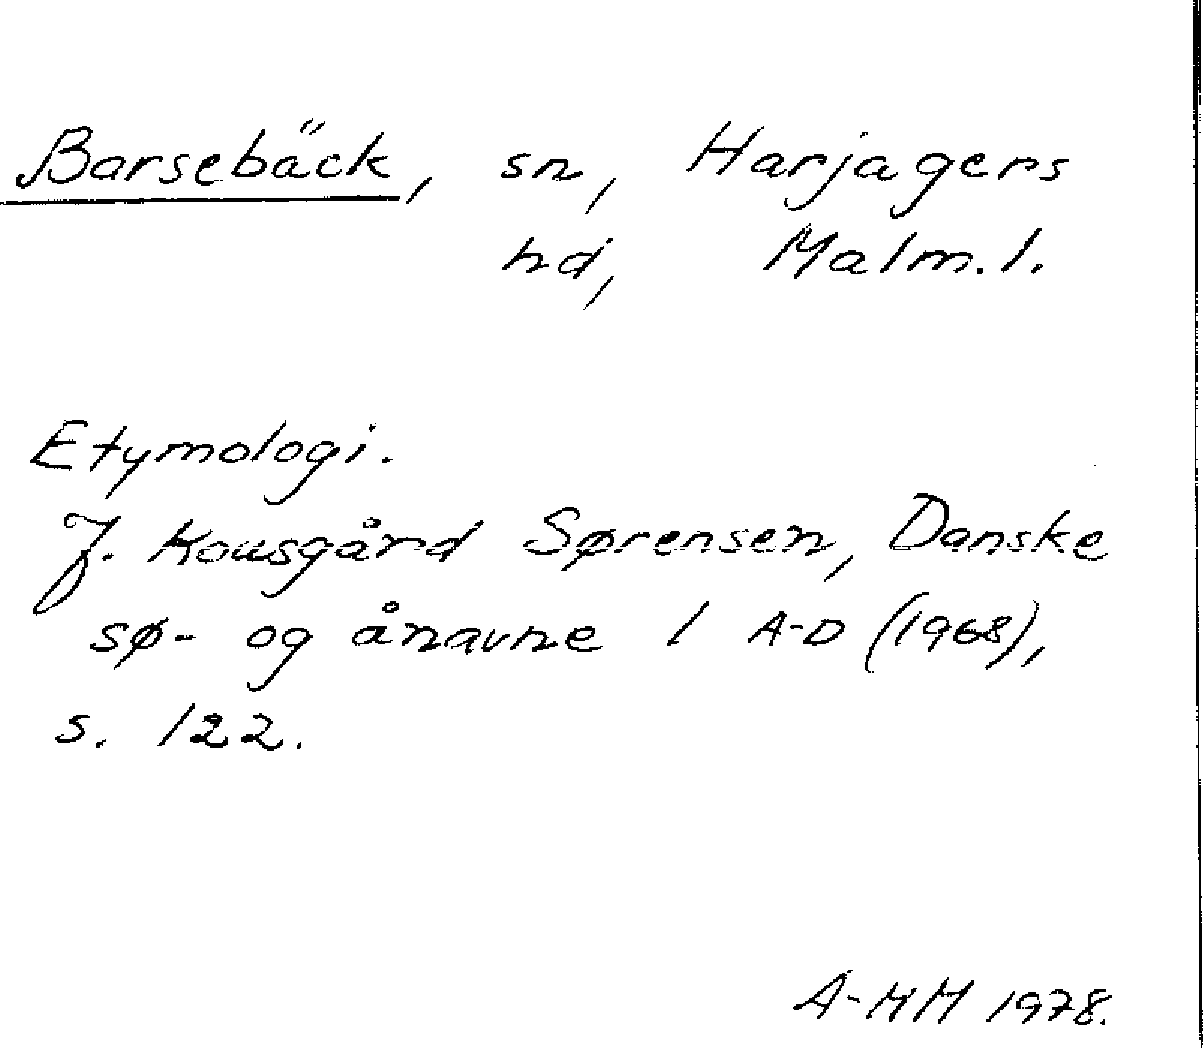 Barsebäck, sn, Harjagers
hd, Malm.l.
Etymologi.
J. Kousgård Sørensen, Danske
sø- og ånavne 1 A-D (1968),
s. 122.
A-MM 1978.